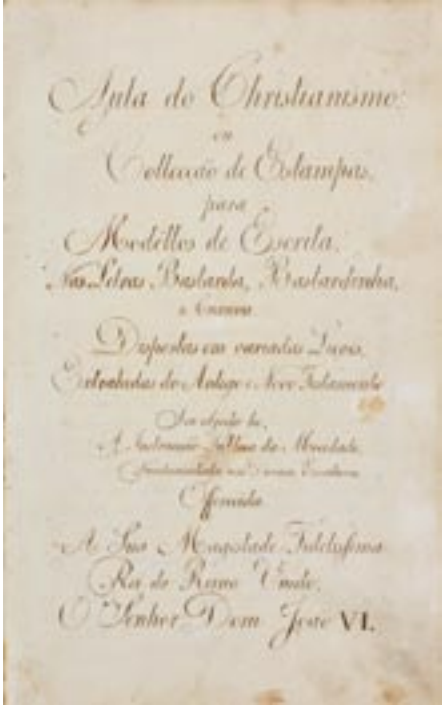 Aula do Christianismo
ou
Collecção de Estampas,
para
Modellos de Escrita,
Nas Letras Bastarda, Bastardinha,
e
Dispostas em variadas
do Antigo e Novo Testamento
A da Mocidade
Offerecida
A Sua Magestade Fidelissima
Rei do Reino Unido,
O Senhor Dom João VI.